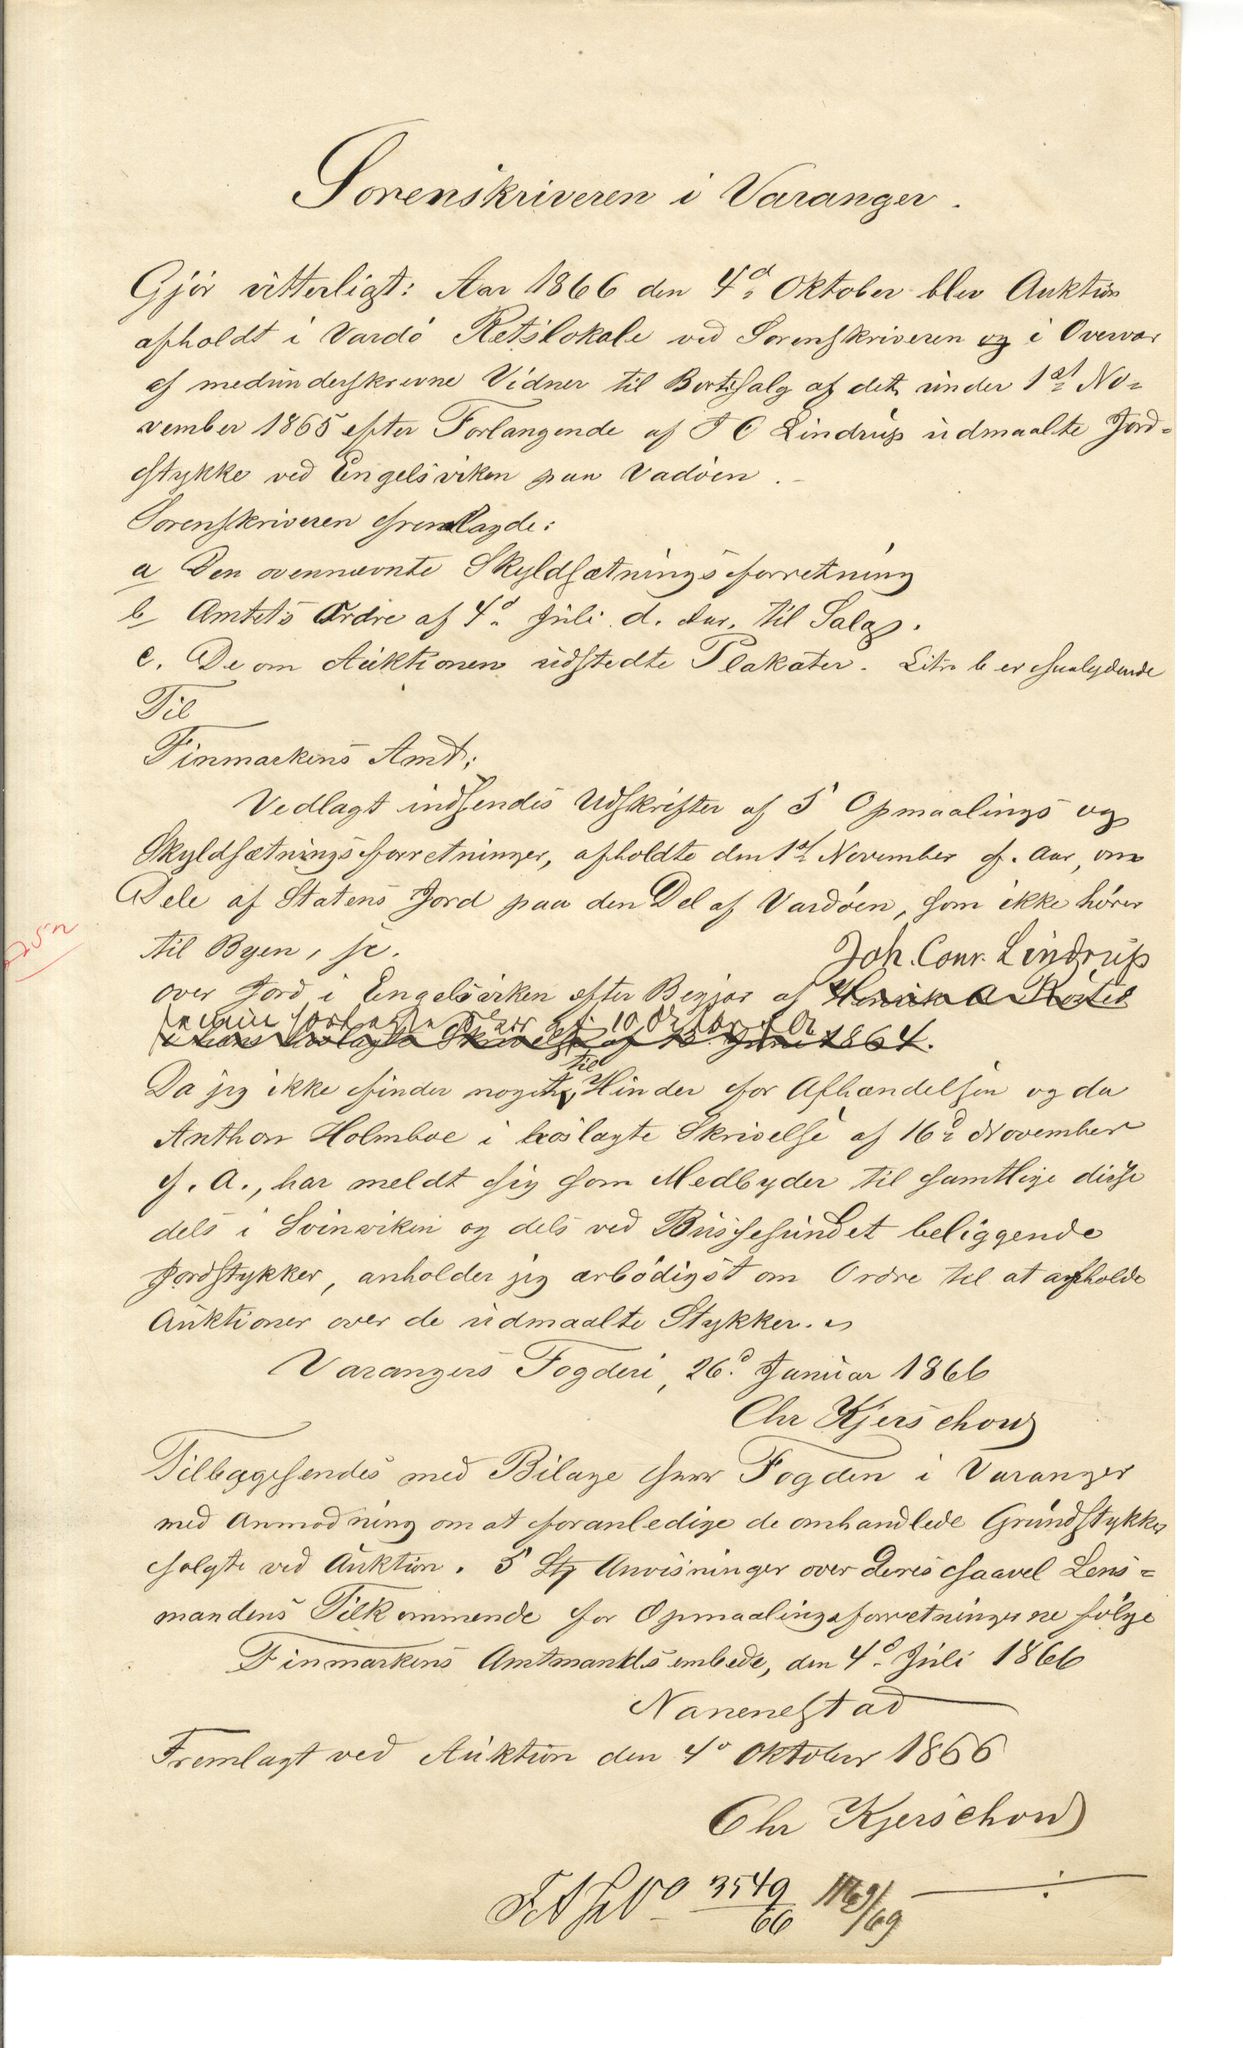 Sorenskriveren i Varanger.
Gjör vitterligt: Aar 1866 den 4d Oktober blev Auktion
afholdt i Vardö Retslokale ved Sorenskriveren og i Overvær
af medunderskrevne Vidner til Bortsalg af det under 1st No=
vember 1865 efter Forlangende af J C Lindrup udmaalte Jord=
stykke ved Engelsviken paa Vadöen.
Sorenskriveren fremlagde:
a Den ovennævnte Skyldsætningsforretning
b Amtets Ordre af 4d Juli d. Aar, til Salg.
c. De om Auktionen udstedte Plakater. Litr b er saalydende
Til
Finmarkens Amt;
Vedlagt indsendes Udskrifter af 5 Opmaalings og
Skyldsætningsforretninger, afholdte den 1st November f. Aar, om
Dele af Statens Jord paa den Del af Vardöen, som ikke hörer
til Byen, sc.
Joh. Conr. Lindrup
over Jord i Engelsviken efter Begjær af Henrik
Skrivelse af Juni 1864.
Da jeg ikke finder noget til Hinder for Afhændelsen og da
Anthon Holmboe i hoslagte Skrivelse af 16d November
f. A., har meldt sig som Medbyder til samtlige disse
dels i Svinviken og dels ved Bussesundet beliggende
Jordstykker, anholder jeg ærbödigst om Ordre til at afholde
Auktioner over de udmaalte Stykker.
Varangers Fogderi, 26d Januar 1866
Chr Kjerschow
Tilbagesendes med Bilage Herr Fogden i Varanger
med Anmodning om at foranledige de omhandlede Grundstykker
solgte ved Auktion. 5 Stk Anvisninger over deres saavel Lens=
mandens Tilkommende for Opmaalingsforretningerne fölge
Finmarkens Amtmandsembede, den 4d Juli 1866
Nannestad
Fremlagt ved Auktion den 4d Oktober 1866
Chr Kjerschow
3549
66
1169/69